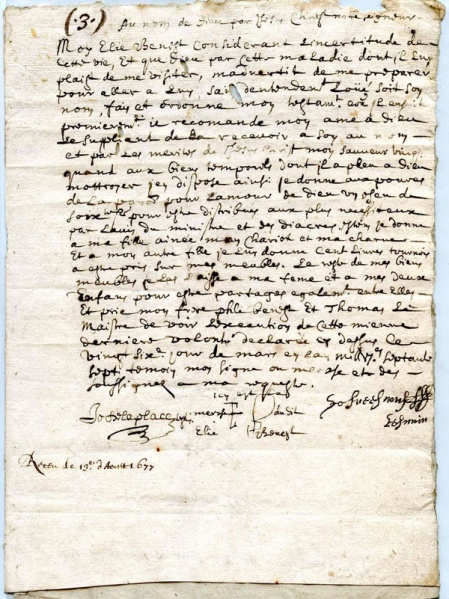 (.3.)
Au nom de dieu par Jesus Christ notre seigneur
Moy Elie Benest Considerant Lincertitude de
Cette vie, Et que dieu par cette maladie dont il Luy
plaist de me visiter, madvertit de me preparer
pour aller a Luy, sain dentendent Loüé soit son
nom, fay et ordonne mon testamt. comme il ensuit
premieremt. je recomande mon ame a dieu
Le supliant de La recevoir a soy au nom
et par Les merites de Jesus Christ mon sauveur
quant aux biens temporels dont il a pleu a dieu
mottroyer jen dispose ainsi je donne aux pauvres
de La paroisse pour Lamour de dieu un escu de
soixte. pour estre distribués aux plus necessiteux
par Lavis du ministre et des diacres. Item je donne
a ma fille ainée mon Chariot et ma charue
Et a mon autre fille je Luy donne Cent Livres tournois
a estre pris sur mes meubles. Le reste de mes biens
meubles je Les Laisse a ma feme et a mes deux
Enfans pour estre partagés egalemt. entre Elles
Et prie mon frere phile Benest Et Thomas Le
Maistre de voir Lexecution de Cette mienne
derniere volonté declarée cy dessus Le
vingt sixe. jour de mars en Lan Septante
Sept temoin mon signe ou marque et des
soussignez a ma requeste.
Jo Delaplace la merke dudit
Elie Benest
Receu le 13e. d'Aoust 1677